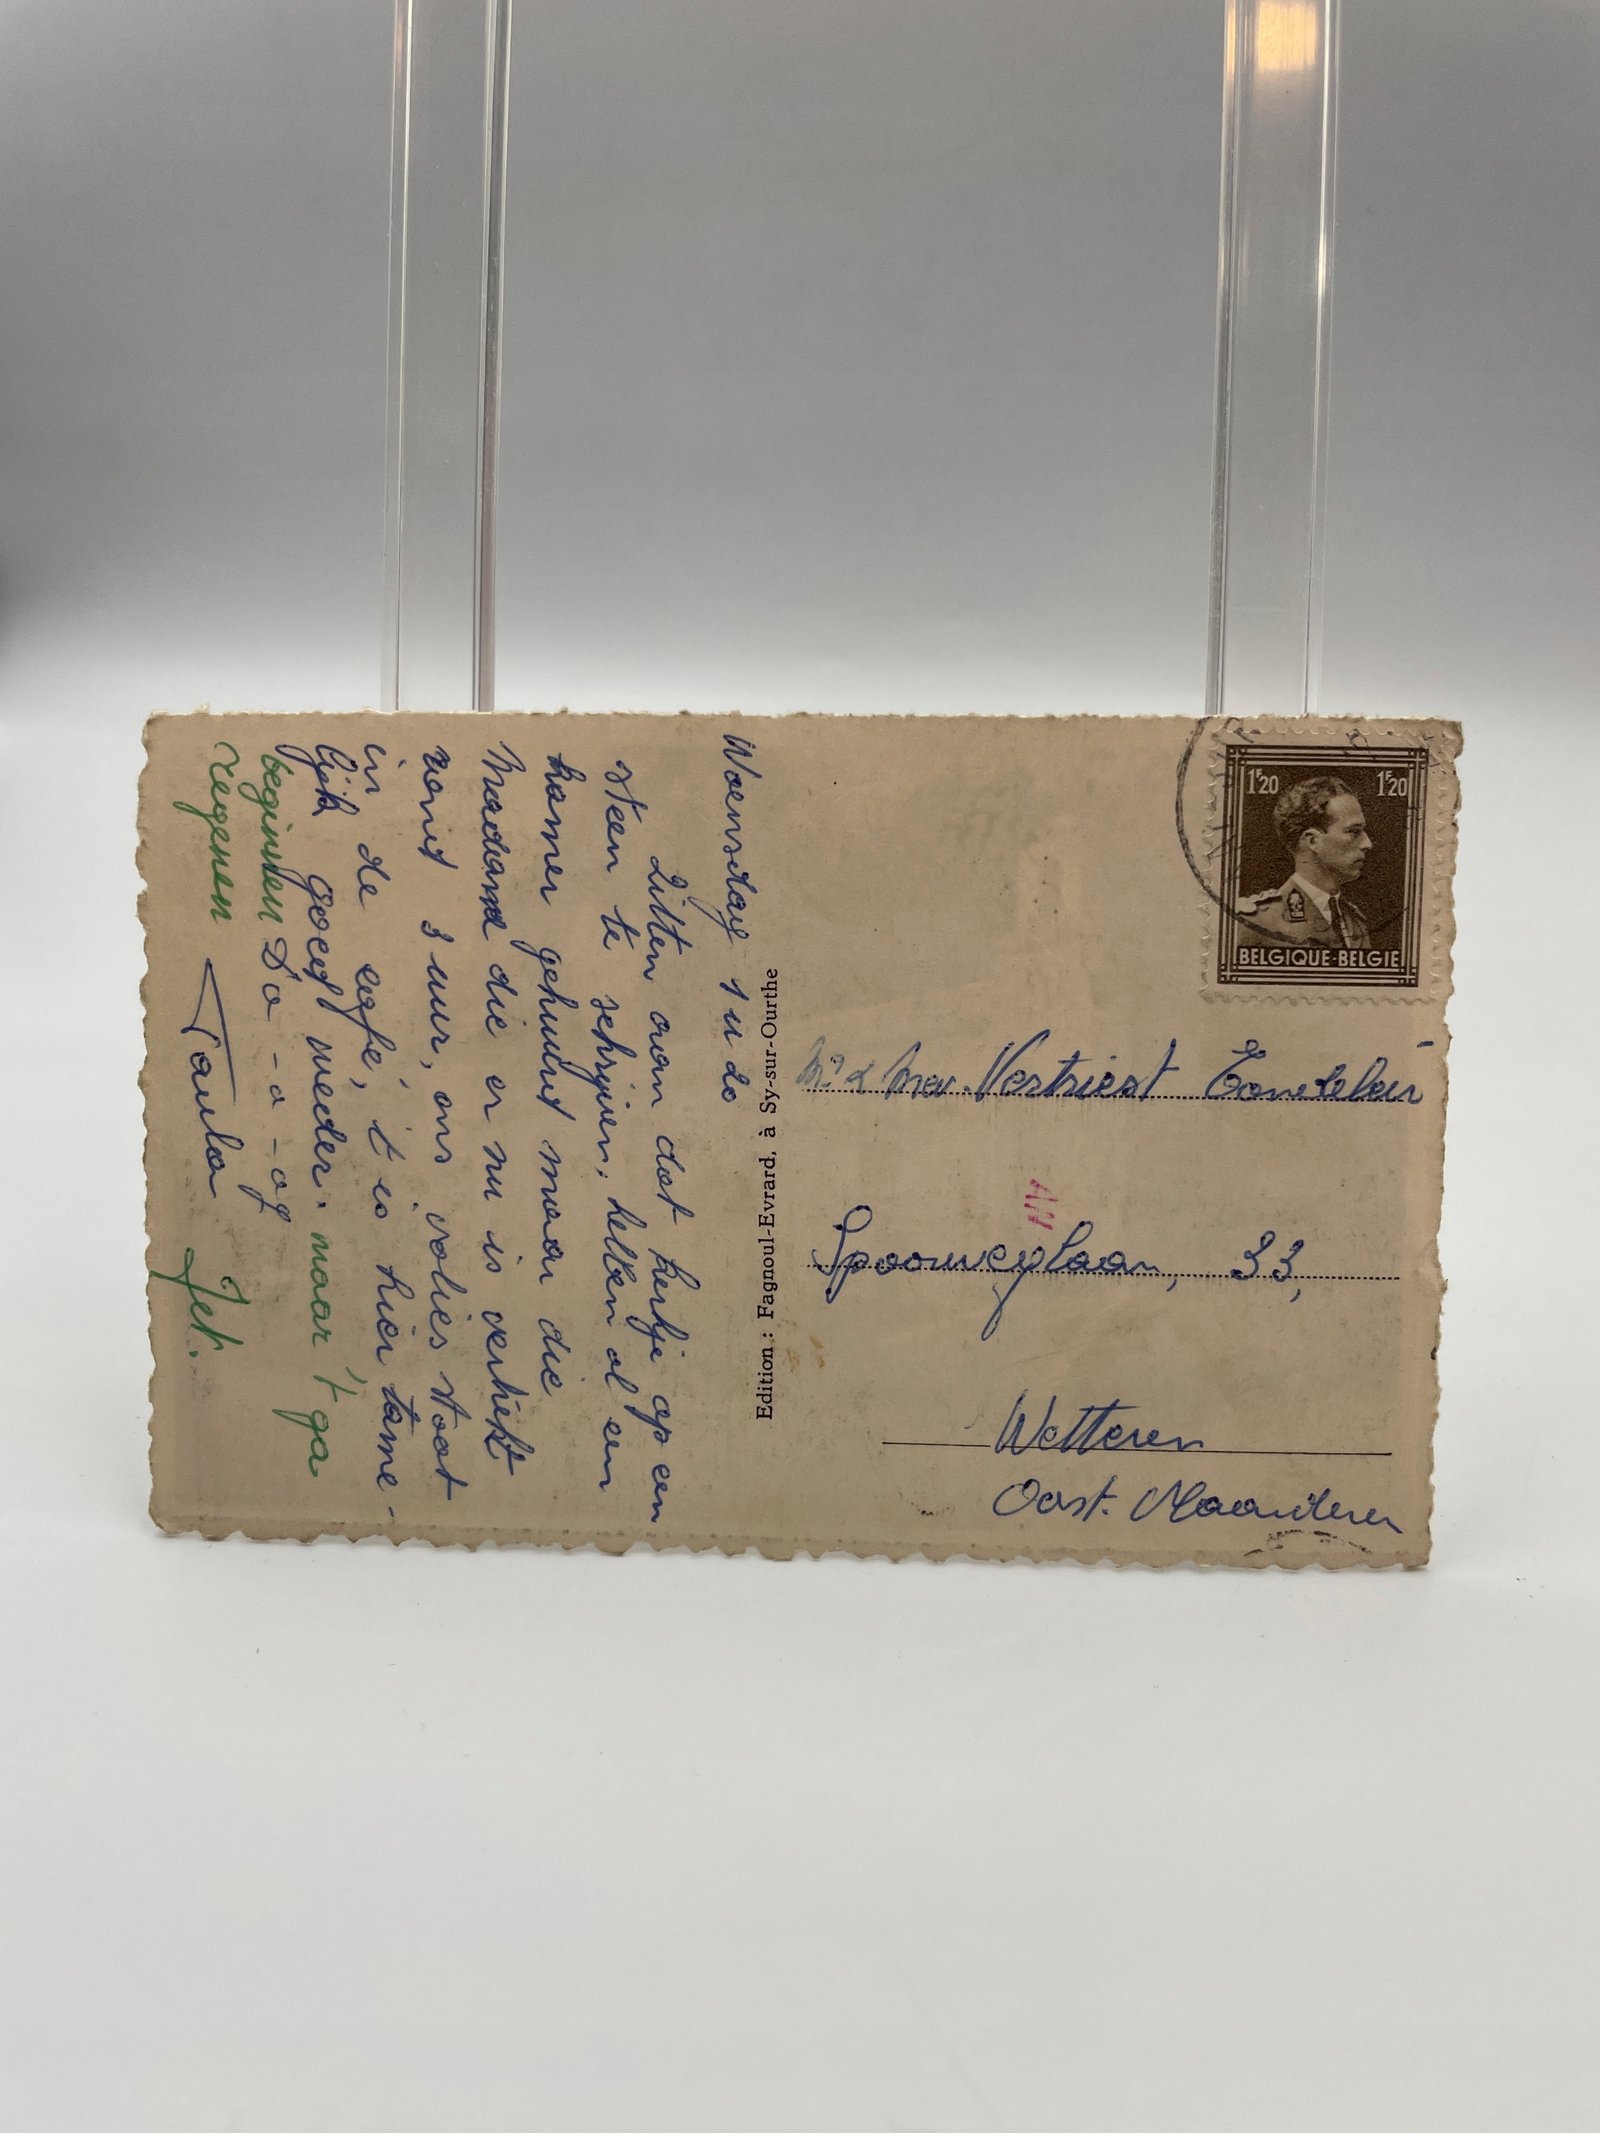 Woensdag 1 u 20
Zitten aan dat kerkje op een
steen te schrijven; hebben al een
kamer gehuurd maar die
Madame die er nu is verhipt
rond 3 uur, ons valies staat
in de café, 't is hier tame-
lijk goed weder. maar 't ga
beginnen Da - a - ag
regenen Paula Jet.
Edition : Fagnoul-Evrard, à Sy-sur-Ourthe
1F20 1F20
BELGIQUE-BELGIE
Mr & Mev. Vertriest
Spoorweglaan, 33,
Wetteren
Oost. Vlaanderen